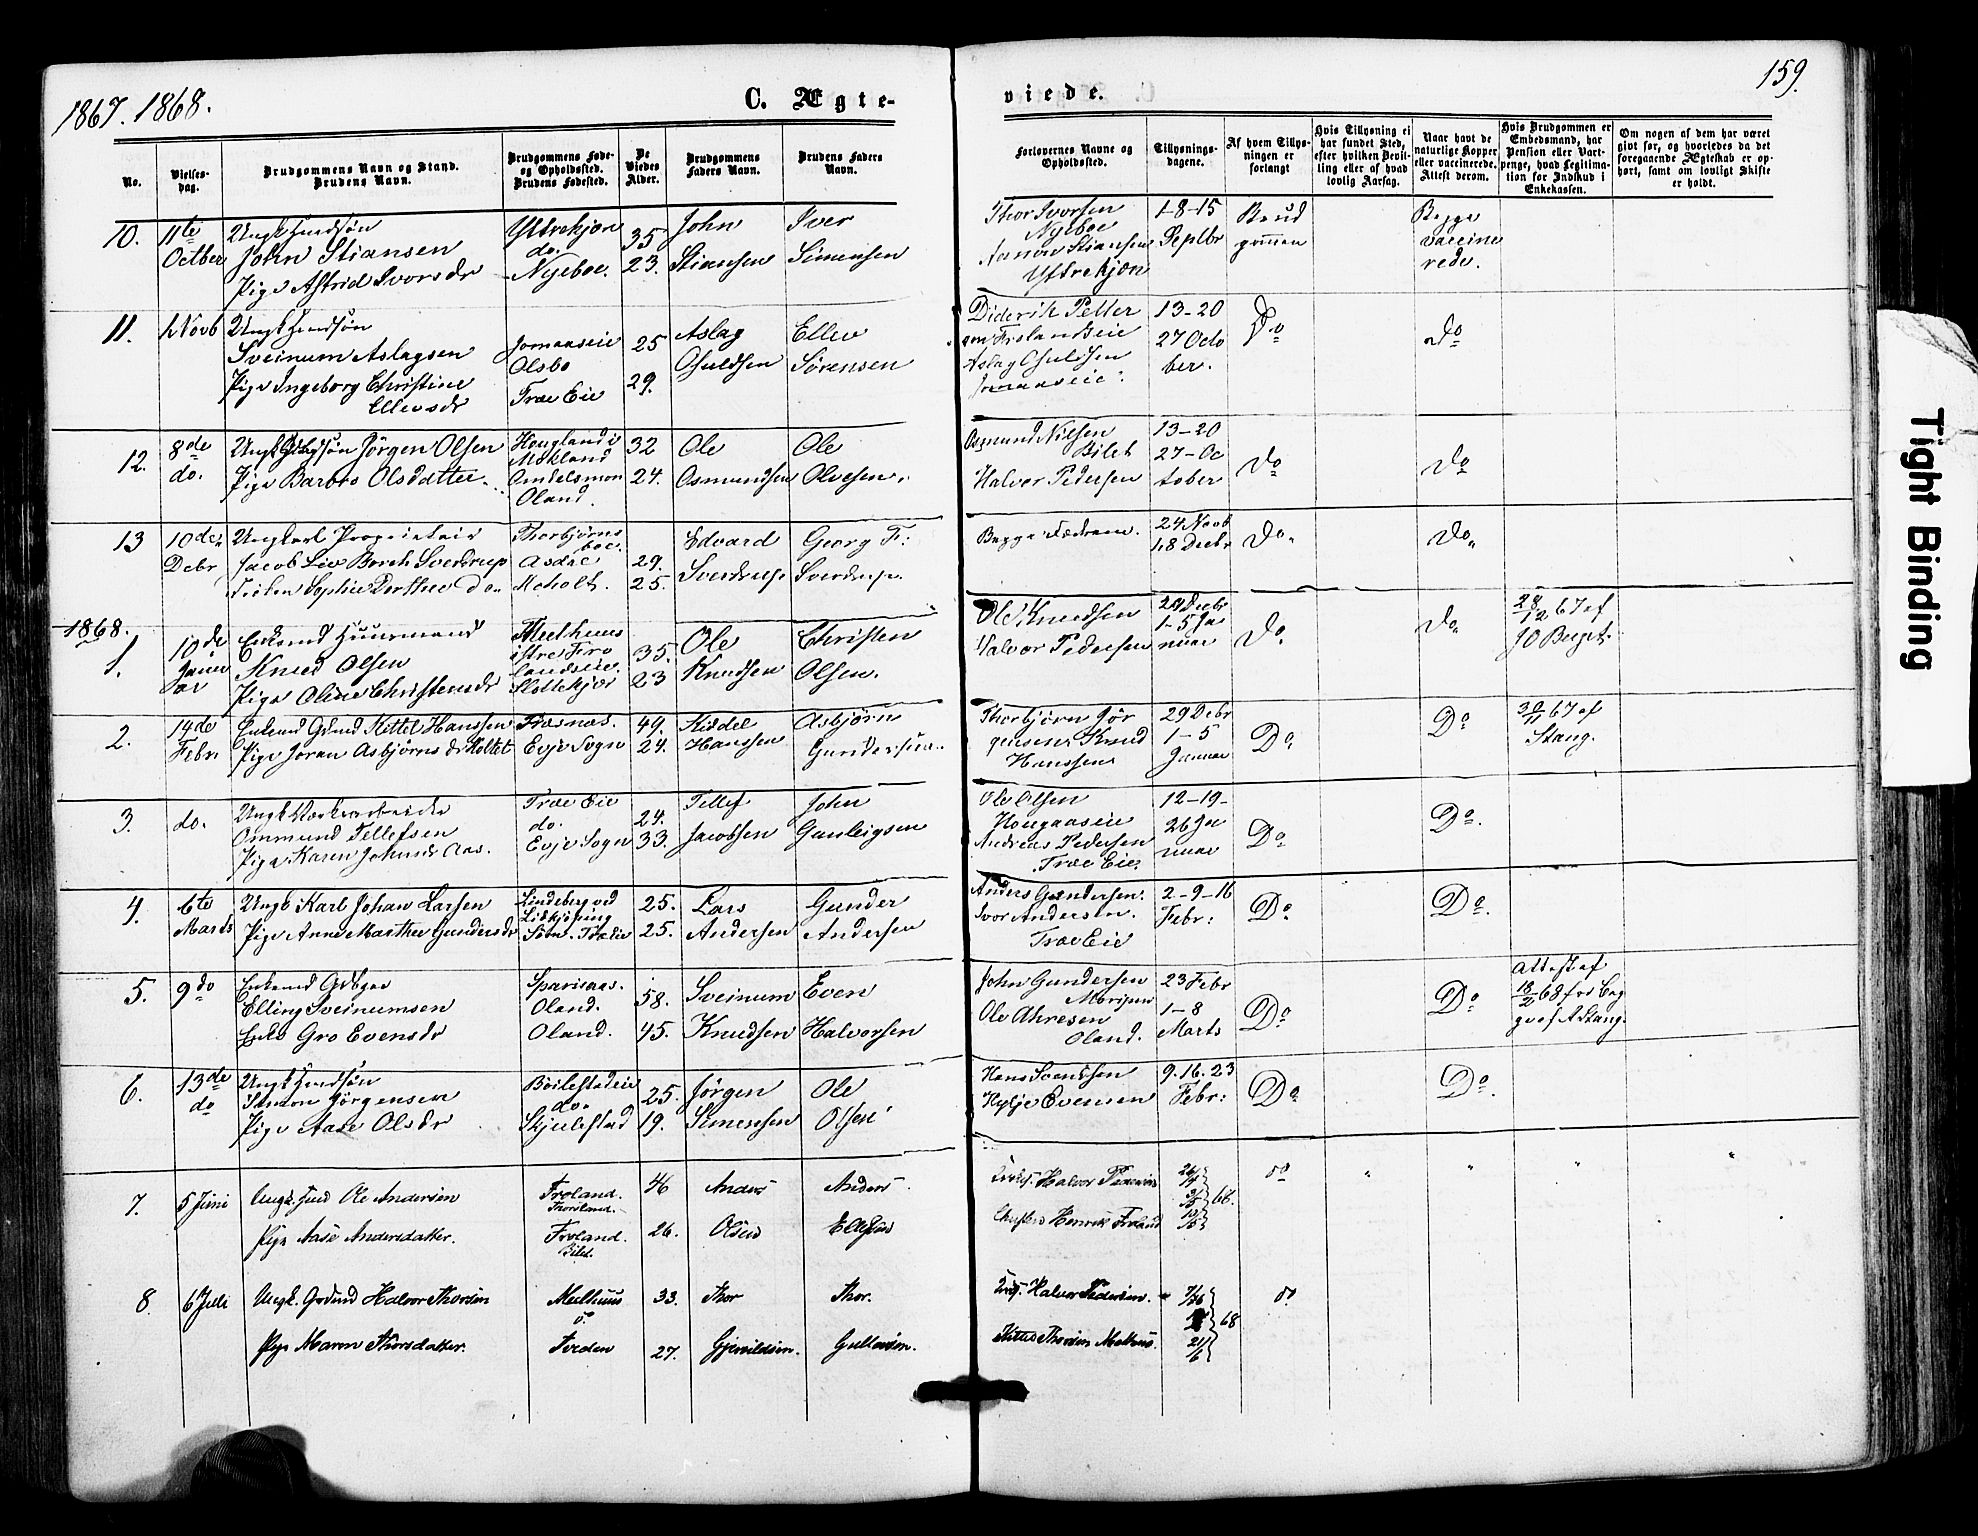 1867. 1868.
C. Ægte-
viede.
159.
No.
Vielses-
dag.
Brudgommens Navn og Stand.
Brudens Navn.
Brudgommens Føde-
og Opholdssted.
Brudens Fødested.
De
Viedes
Alder.
Brudgommens
Faders Navn.
Brudens Faders
Navn.
Forlovernes Navne og
Opholdssted.
Tillysnings-
dagene.
Af hvem Tillys-
ningen er
forlangt
Hvis Tillysning ei
har fundet Sted,
efter hvilken Bevil-
ling eller af hvad
lovlig Aarsag.
Naar havt de
naturlige Kopper
eller vaccinerede.
Attest derom.
Hvis Brudgommen er
Embedsmand, har
Pension eller Vart-
penge, hvad Legitima-
tion for Indskud i
Enkekassen.
Om nogen af dem har været
gift før, og hvorledes da det
foregaaende Ægteskab er op-
hørt, samt om lovligt Skifte
er holdt.
10. 11te Octber
Ungk Gmdsøn
John Stiansen
Pige Astrid Ivorsdr
Yttrekjøn
do.
Nyeboe.
35
23.
John
Stiansen
Iver
Simensen
Thor Ivorsen
Nyeboe
Stiansen
Yttrekjøn
1-8-15
Septbr
Brud
gommen
Begge
vaccine
rede.
11. Novb
Ungk Gmdsøn
Sveinum Aslagsen
Pige Ingeborg Christine
Ellevsdr
Jomaaseie
Olsbo
Træ Eie
25
29.
Aslag
Osuldsen
Ellev
Sørensen
Diderik Petter
Aslag Osuldsen
Jomaaseie.
13-20
27 Octo
ber.
Do
do
12. 8de do.
Jørgen Olsen
Pige Barbro Olsdatter
Hougland i
Mokland
Oland.
32
24.
Ole
Osmundsen
Ole
Olvesen.
Osmund Nilsen
Bilet
Halvor Pedersen
13-20
27-Oc
tober
do
do
13 10de Debr
Ungkarl Proprietair
Jacob Liv Borch Sverdrup
Frøken Sophie Dorthea do.
Thorbjørns
boe.
Asdal
Moholt.
29.
25.
Edvard
Sverdrup
Georg F:
Sverdrup.
Begge Fædrene.
24 Novb
1.8 Decbr
Do.
Do.
1868.
1. 10de Januar
Enkemd Huusmand
Knud Olsen
Pige Oline Christensdr
Mælhuus
istre Fro
landseie.
Slottekjær
35.
23
Ole
Knudsen
Christen
Olsen.
Ole Knudsen
Halvor Pedersen
29 Decbr
1-5 Ja
nuar
do.
do.
28/12 67 af
2. 14de Febr.
Enkemd Gdmd Kittel Hanssen
Pige Joran Asbjørnsdr Holtet
Træsnæs.
Evje Sogn
49.
24.
Kiddel
Hanssen
Asbjørn
Gundersen.
Thorbjørn Jør
gensen Knud
Hanssen
29 Debr
1-5
Januar
Do.
Do
30/11 67 af
Stang.
3. do.
Ungk Værksarbeider
Ommund Tellefsen
Pige Karen Johnsdr Aas.
Træ Eie
do.
Evje Sogn
24.
33.
Tellef
Jacobsen
John
Gunleigsen
Ole Olsen
Hougaaseie
Andreas Pedersen
Træ Eie.
12-19-
26 Ja
nuar
Do
Do.
4. 6te Marts
Ungk Karl Johan Larsen
Pige Anne Marthea Gundersdr
Lindeberg ved
Lidkjøping
25.
25.
Lars
Andersen
Gunder
Andersen
Anders Gundersen.
Ivor Andersen.
Træ Eie
2-9-16
Febr:
Do.
Do.
5. 9 do
Elling Sveinumsen
Enke Gro Evensdr
Oland.
Oland.
58.
45.
Sveinum
Knudsen
Even
Halvorsen
John Gundersen
Ole
Oland.
23 Febr
1-8
Marts
Do
Do
Attest af
18/2 68
af Stang.
6. 13de do
Ungk Gmdsøn
Simon Jørgensen
Pige Aase Olsdr
Bøilestadeie
do.
Skjulestad
25.
19.
Jørgen
Simensen
Ole
Olsen
Hans Svendsen
Evensen
9.16.23
Febr:
Do
Do.
7. 5 Juni
Ungk. Ole Andersen
Pige Aase Andersdatter.
Froland.
Froland.
Bilet.
46
26.
Anders
Olsen
Anders
Ellefsen
Halvor Pedersen
Henrik Froland
68.
do
8. 6 Juli
Ungk. Gdmd Halvor Thorsen
Pige Maren Thorsdatter.
Mælhuus
33.
27.
Thor
Gjerulдsen.
Thor.
Gullovsen.
Halvor Pedersen.
Kittel Thorsen Mælhuus.
68
do
Tight Binding